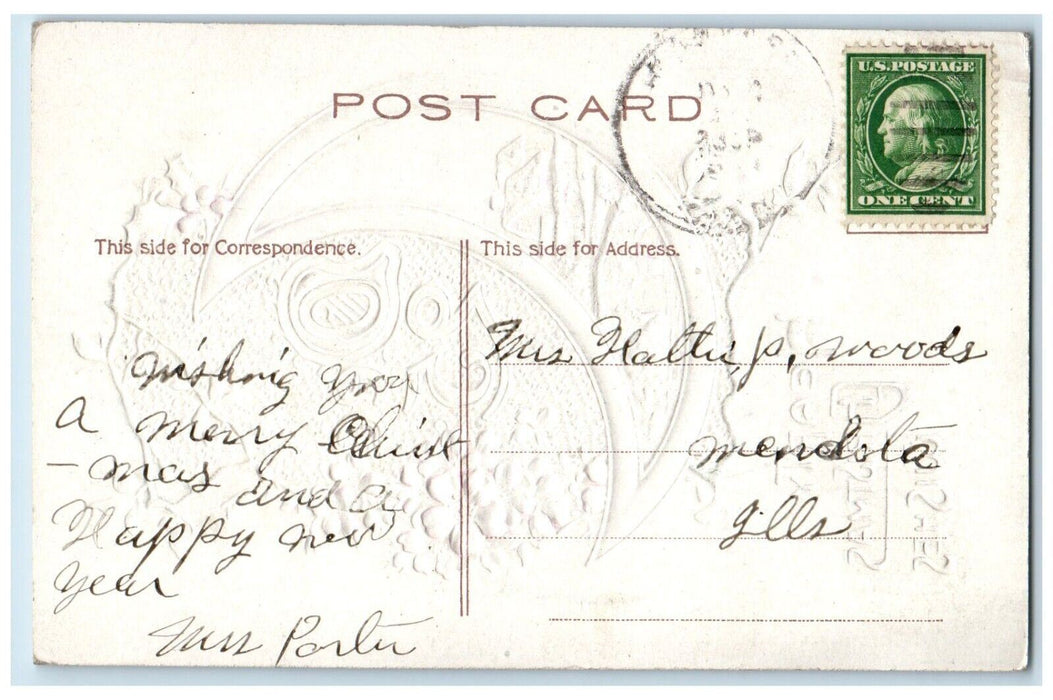 POST CARD
U.S. POSTAGE
ONE CENT
This side for Correspondence.
This side for Address.
Wishing you
A merry Christ
-mas and a
Happy new
year
Mrs Porter
Mrs Hattie P. Woods
Mendota
Ills